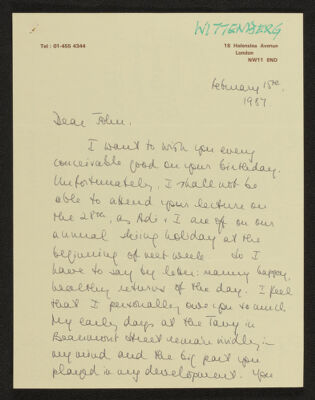 WITTENBERG
Tel: 01-455 4344
18 Holenstea Avenue
London
NW11 END
February 15th,
1987
Dear John,
I want to wish you every
conceivable good on your birthday.
Unfortunately, I shall not be
able to attend your lecture on
the 28th, as Adi & I are off on our
annual skiing holiday at the
beginning of next week. So I
have to say by letter: many happy,
healthy returns of the day. I feel
that I personally owe you so much.
My early days at the Tavy in
Beaumont Street remain vividly in
my mind and the big part you
played in my development. You